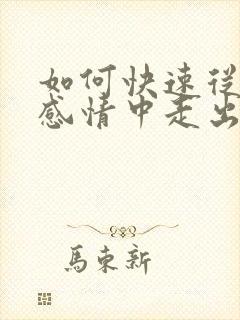 如何快速从
感情中走出
馬東新